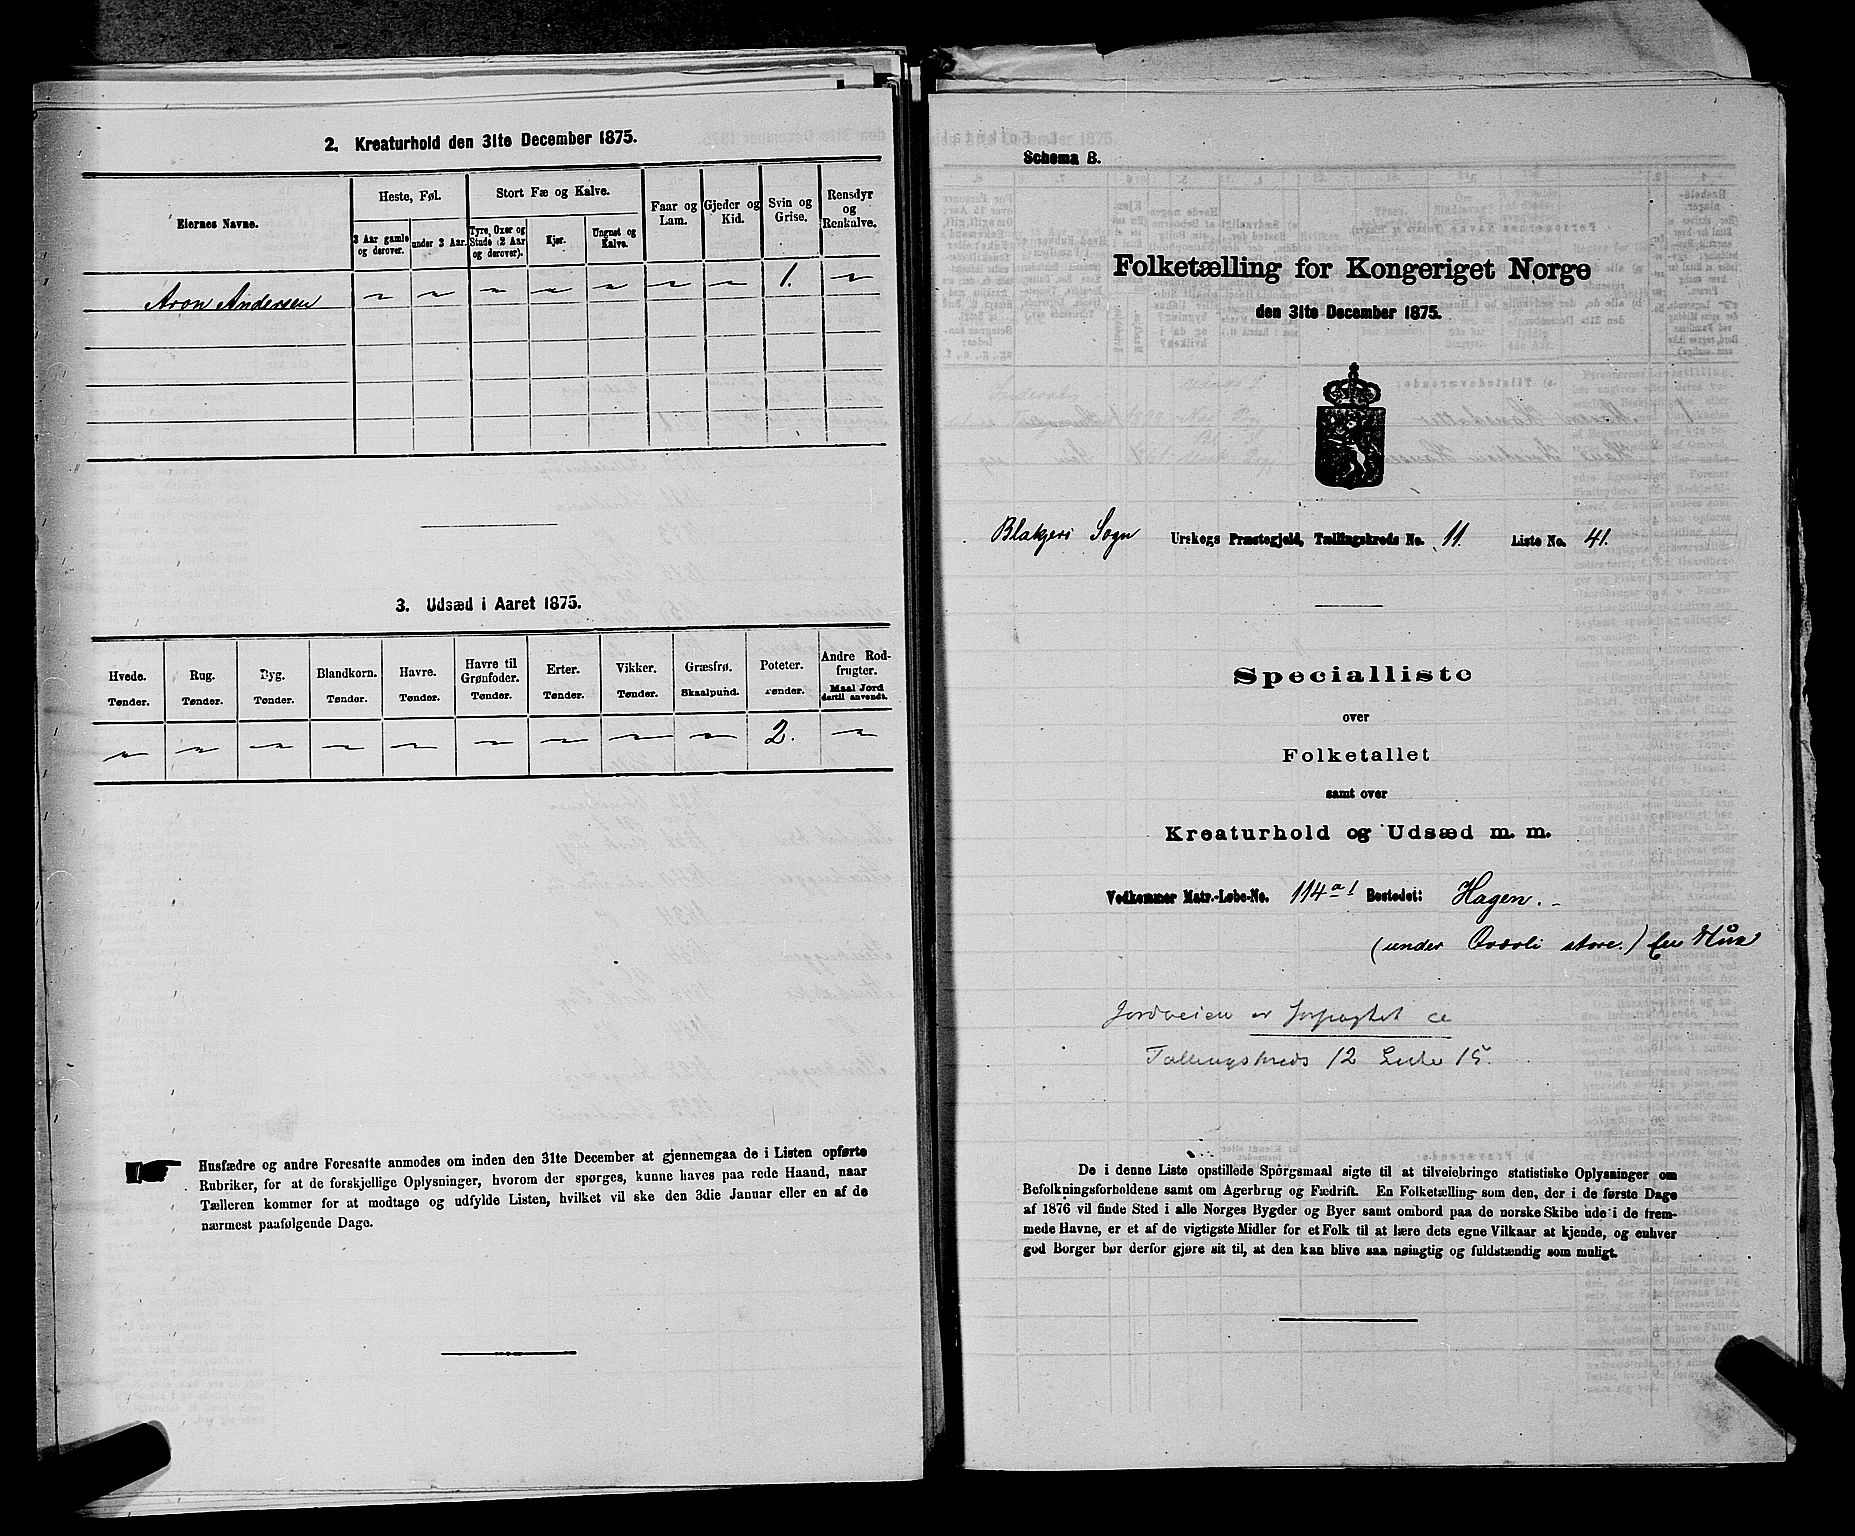 2. Kreaturhold den 31te December 1875.
Eiernes Navne.
Heste, Føl.
Stort Fæ og Kalve.
Faar og Lam.
Gjeder og Kid.
Svin og Grise.
Rensdyr og Renkalve.
3 Aar gamle og derover.
under 3 Aar.
Tyre, Oxer og Stude (2 Aar og derover).
Kjør.
Ungnøt og Kalve.
Aron Andersen ~ ~ ~ ~ ~ ~ ~ 1. ~
3. Udsæd i Aaret 1875.
Hvede. Rug. Byg. Blandkorn. Havre. Havre til Grønfoder. Erter. Vikker. Græsfrø. Poteter. Andre Rodfrugter.
Tønder. Tønder. Tønder. Tønder. Tønder. Tønder. Tønder. Tønder. Skaalpund. Tønder. Maal Jord dertil anvendt.
~ ~ ~ ~ ~ ~ ~ ~ ~ 2. ~
Husfædre og andre Foresatte anmodes om inden den 31te December at gjennemgaa de i Listen opførte
Rubriker, for at de forskjellige Oplysninger, hvorom der spørges, kunne haves paa rede Haand, naar
Tælleren kommer for at modtage og udfylde Listen, hvilket vil ske den 3die Januar eller en af de
nærmest paafølgende Dage.
Schema B.
Folketælling for Kongeriget Norge
den 31te December 1875.
Blakjers Sogn Urskogs Præstegjeld, Tællingskreds No. 11. Liste No. 41.
Specialliste
over
Folketallet
samt over
Kreaturhold og Udsæd m. m.
Vedkommer Matr.-Løbe-No. 114 a 1 Bostedet: Hagen.
(under Qværli store.) En Hus
Jordveien er forpagtet ce
Tællingskreds 12 Liste 15.
De i denne Liste opstillede Spørgsmaal sigte til at tilveiebringe statistiske Oplysninger om
Befolkningsforholdene samt om Agerbrug og Fædrift. En Folketælling som den, der i de første Dage
af 1876 vil finde Sted i alle Norges Bygder og Byer samt ombord paa de norske Skibe ude i de frem-
mede Havne, er et af de vigtigste Midler for et Folk til at lære dets egne Vilkaar at kjende, og enhver
god Borger bør derfor gjøre sit til, at den kan blive saa nøiagtig og fuldstændig som muligt.